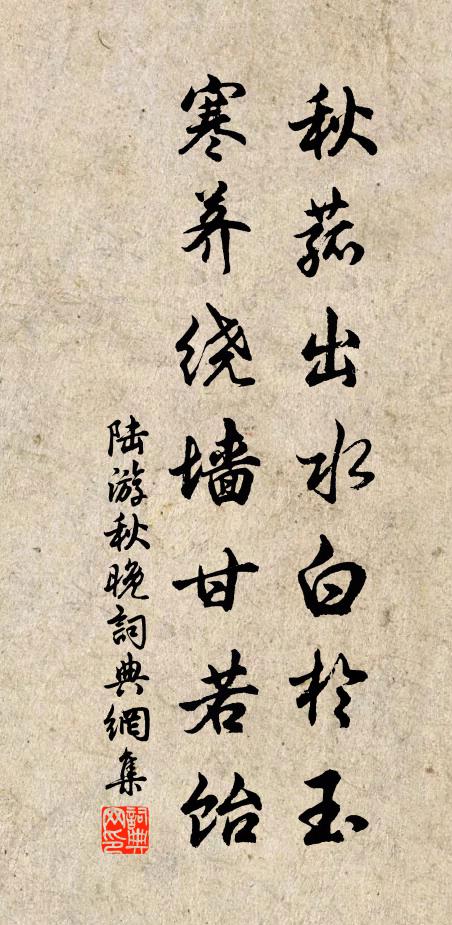 秋菰出水白於玉
寒荠绕墙甘若饴
陆游秋晚詞典網集
詞典网印